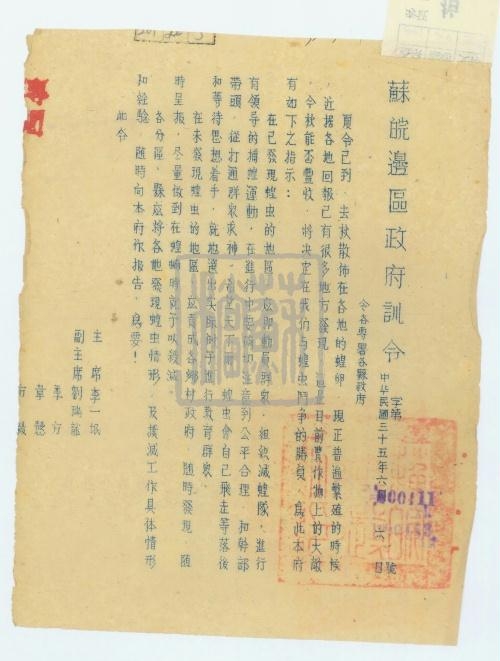 蘇皖邊區政府訓令
字第 號
中华民國三十五年六月 六 日
令各專署各縣政府
夏令已到，去秋散佈在各地的蝗卵，現正普遍繁殖的時候
，近據各地回報已有很多地方發現，這是目前農作物上的大敵
，今秋能否豐收，將决定在我们与蝗虫鬥争的勝負，為此本府
有如下之指示：
在已發現蝗虫的地區，应即動員群众，組織滅蝗隊，進行
有領导的捕蝗運動，在進行中应確切注意到公平合理，和幹部
帶頭，從打通群眾求神，
蝗虫會自己飛走等落後
和等待思想着手，就地選出实際例子進行教育群众。
在未發現蝗虫的地區，应責成各鄉村政府，随時發現，随
時呈报，尽量做到在蝗蝻時就予以殺滅。
各分區，縣应將各地發現蝗虫情形，及撲滅工作具体情形
和经驗，随時向本府作报告，為要！
此令
主席李一氓
副主席劉瑞龍
季方
韋慤
方毅